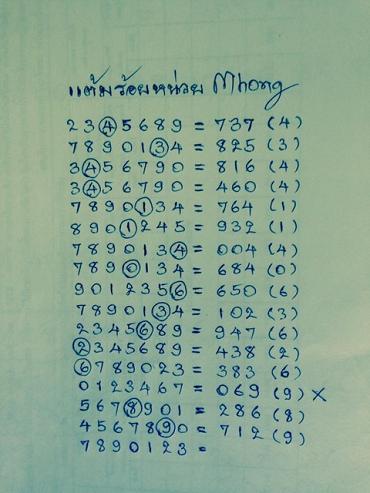 แต้มร้อยหน่วย Mhong
2345689 = 737 (4)
7890134 = 825 (3)
3456790 = 816 (4)
3456790 = 460 (4)
7890134 = 764 (1)
8901245 = 932 (1)
7890134 = 004 (4)
7890134 = 684 (0)
9012356 = 650 (6)
7890134 = 102 (3)
2345689 = 947 (6)
2345689 = 438 (2)
6789023 = 383 (6)
0123467 = 069 (9) ×
5678901 = 286 (8)
4567890 = 712 (9)
7890123 =